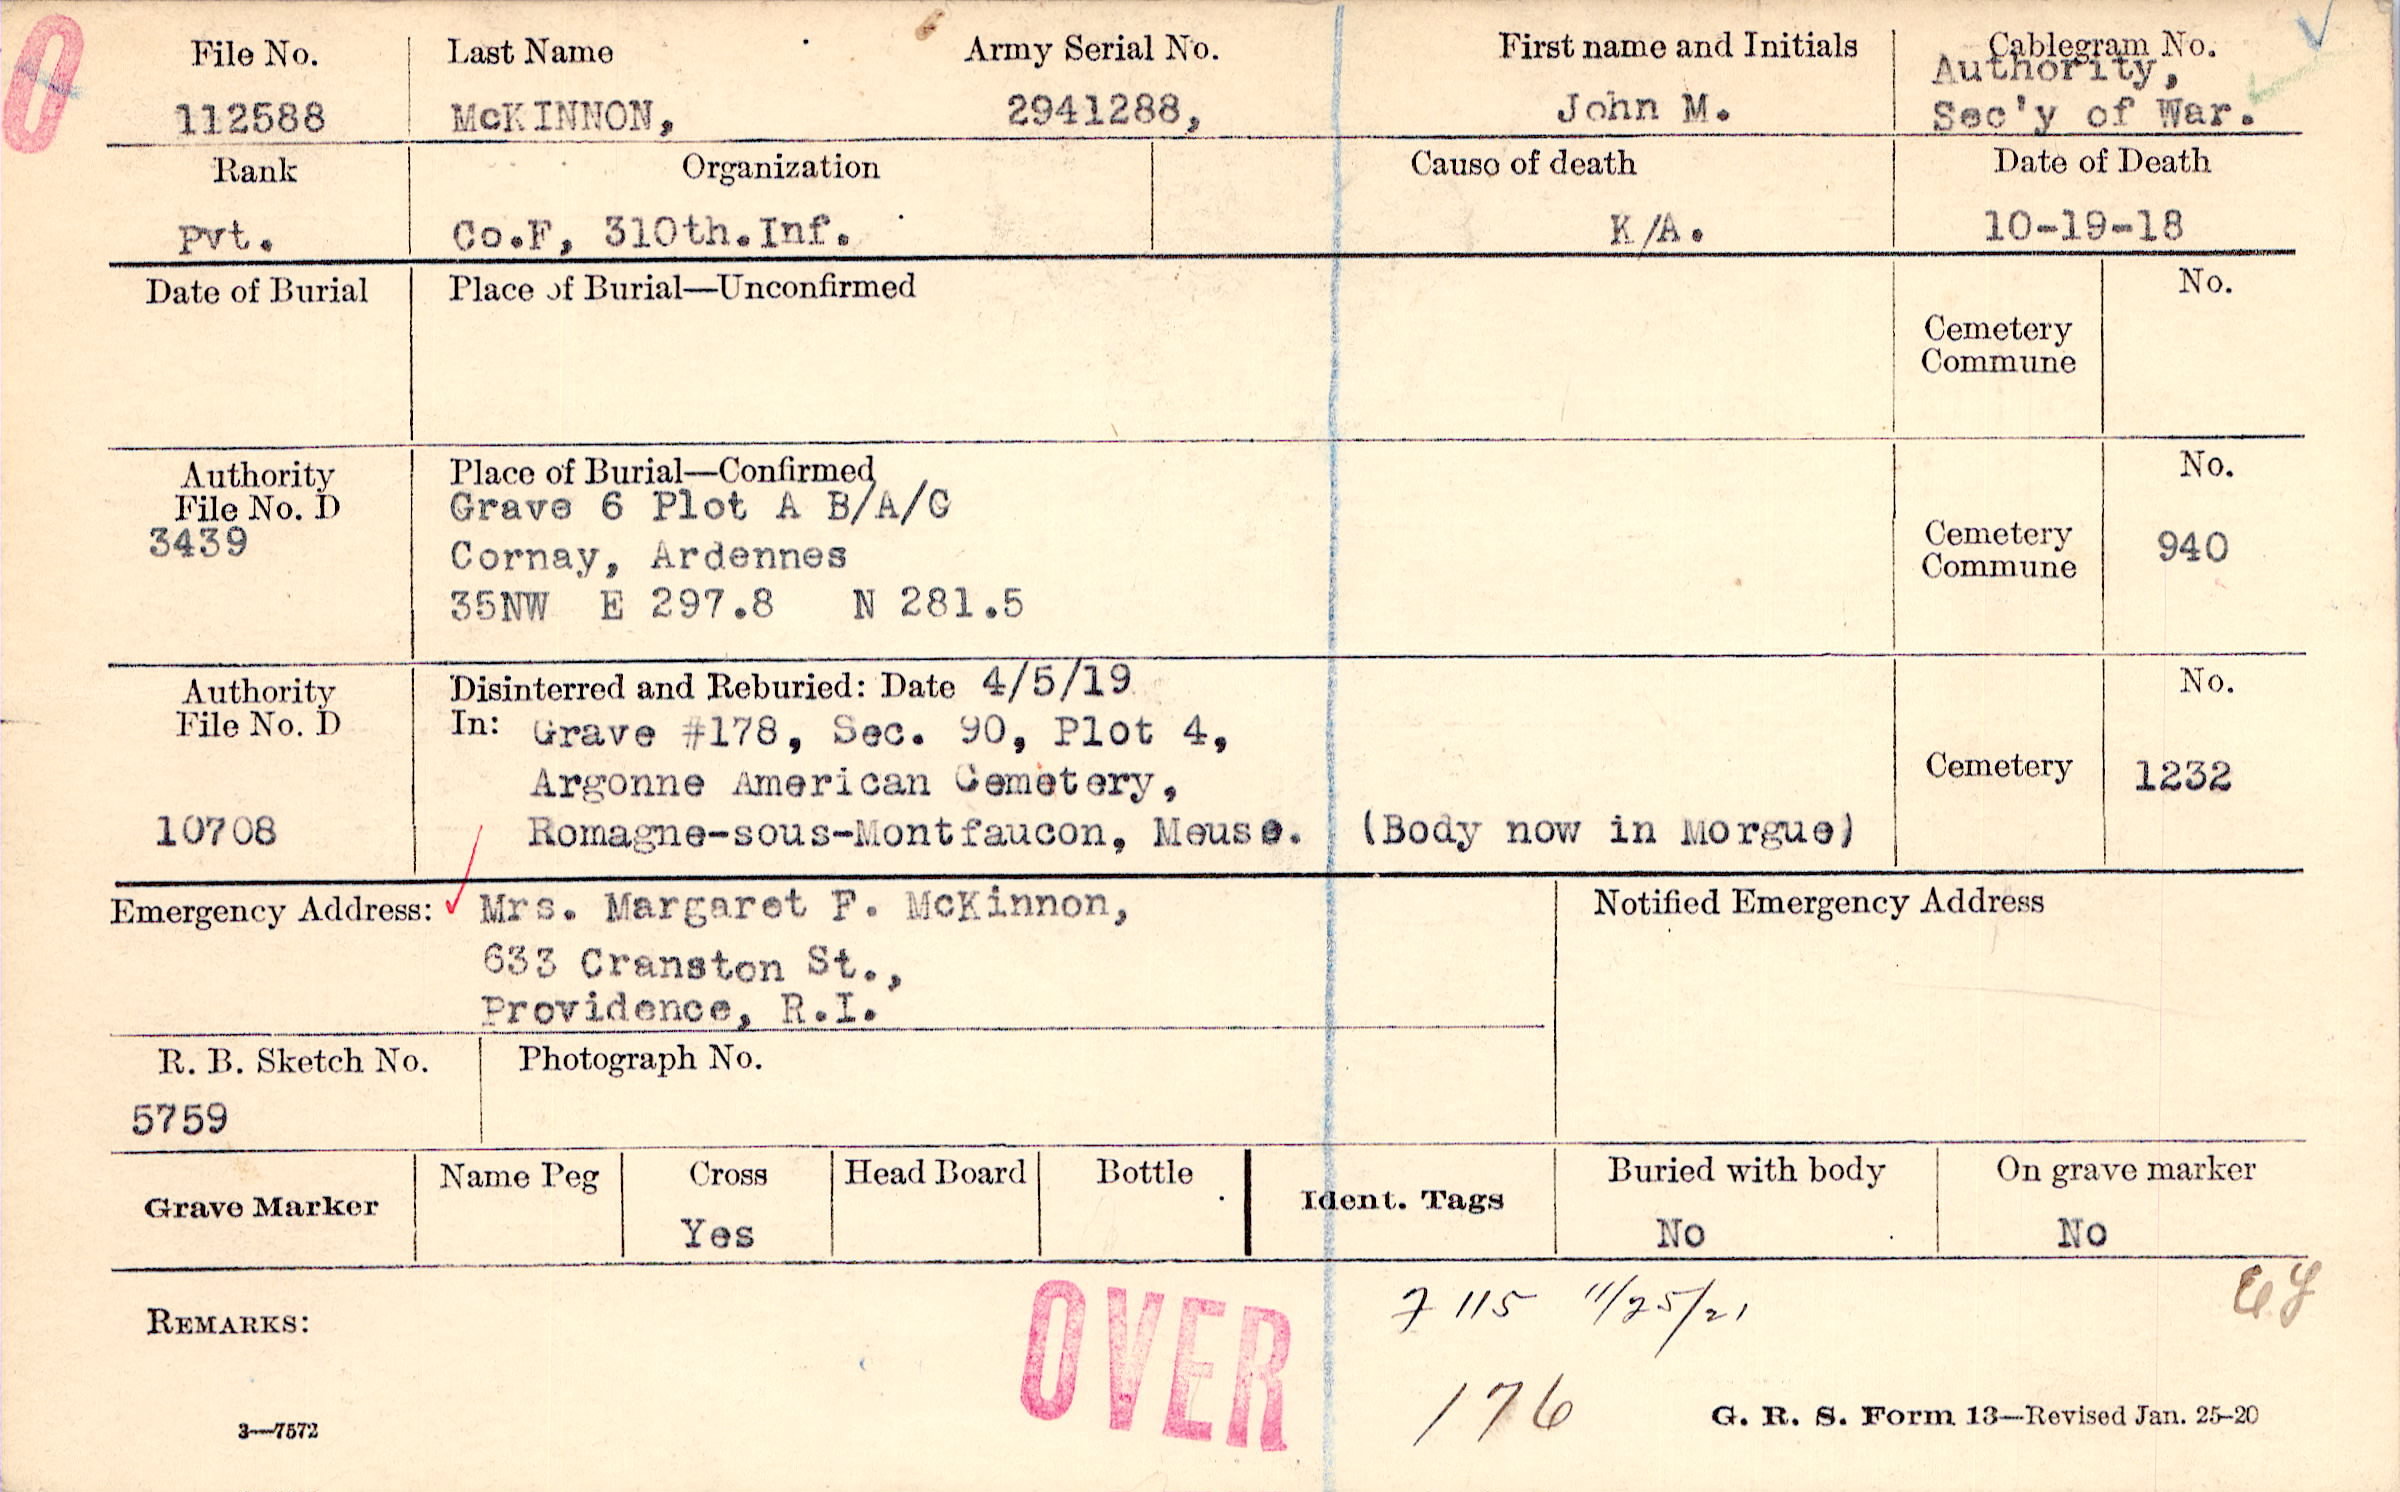 O
File No. Last Name Army Serial No. First name and Initials Cablegram No.
Authority,
112588 McKINNON, 2941288, John M. Sec'y of War.
Rank Organization Cause of death Date of Death
Pvt. Co.F, 310th.Inf. K/A. 10-19-18
Date of Burial Place of Burial—Unconfirmed No.
Cemetery
Commune
Authority Place of Burial—Confirmed No.
File No. D Grave 6 Plot A B/A/G
3439 Cornay, Ardennes Cemetery 940
Commune
35NW E 297.8 N 281.5
Authority Disinterred and Reburied: Date 4/5/19 No.
File No. D In: Grave #178, Sec. 90, Plot 4,
Argonne American Cemetery, Cemetery 1232
10708 Romagne-sous-Montfaucon, Meuse. (Body now in Morgue)
Emergency Address: Mrs. Margaret F. McKinnon, Notified Emergency Address
633 Cranston St.,
Providence, R.I.
R. B. Sketch No. Photograph No.
5759
Grave Marker Name Peg Cross Head Board Bottle Ident. Tags Buried with body On grave marker
Yes No No
REMARKS: OVER 7 115 11/25/21
176
3—7572 G. R. S. Form 13—Revised Jan. 25-20